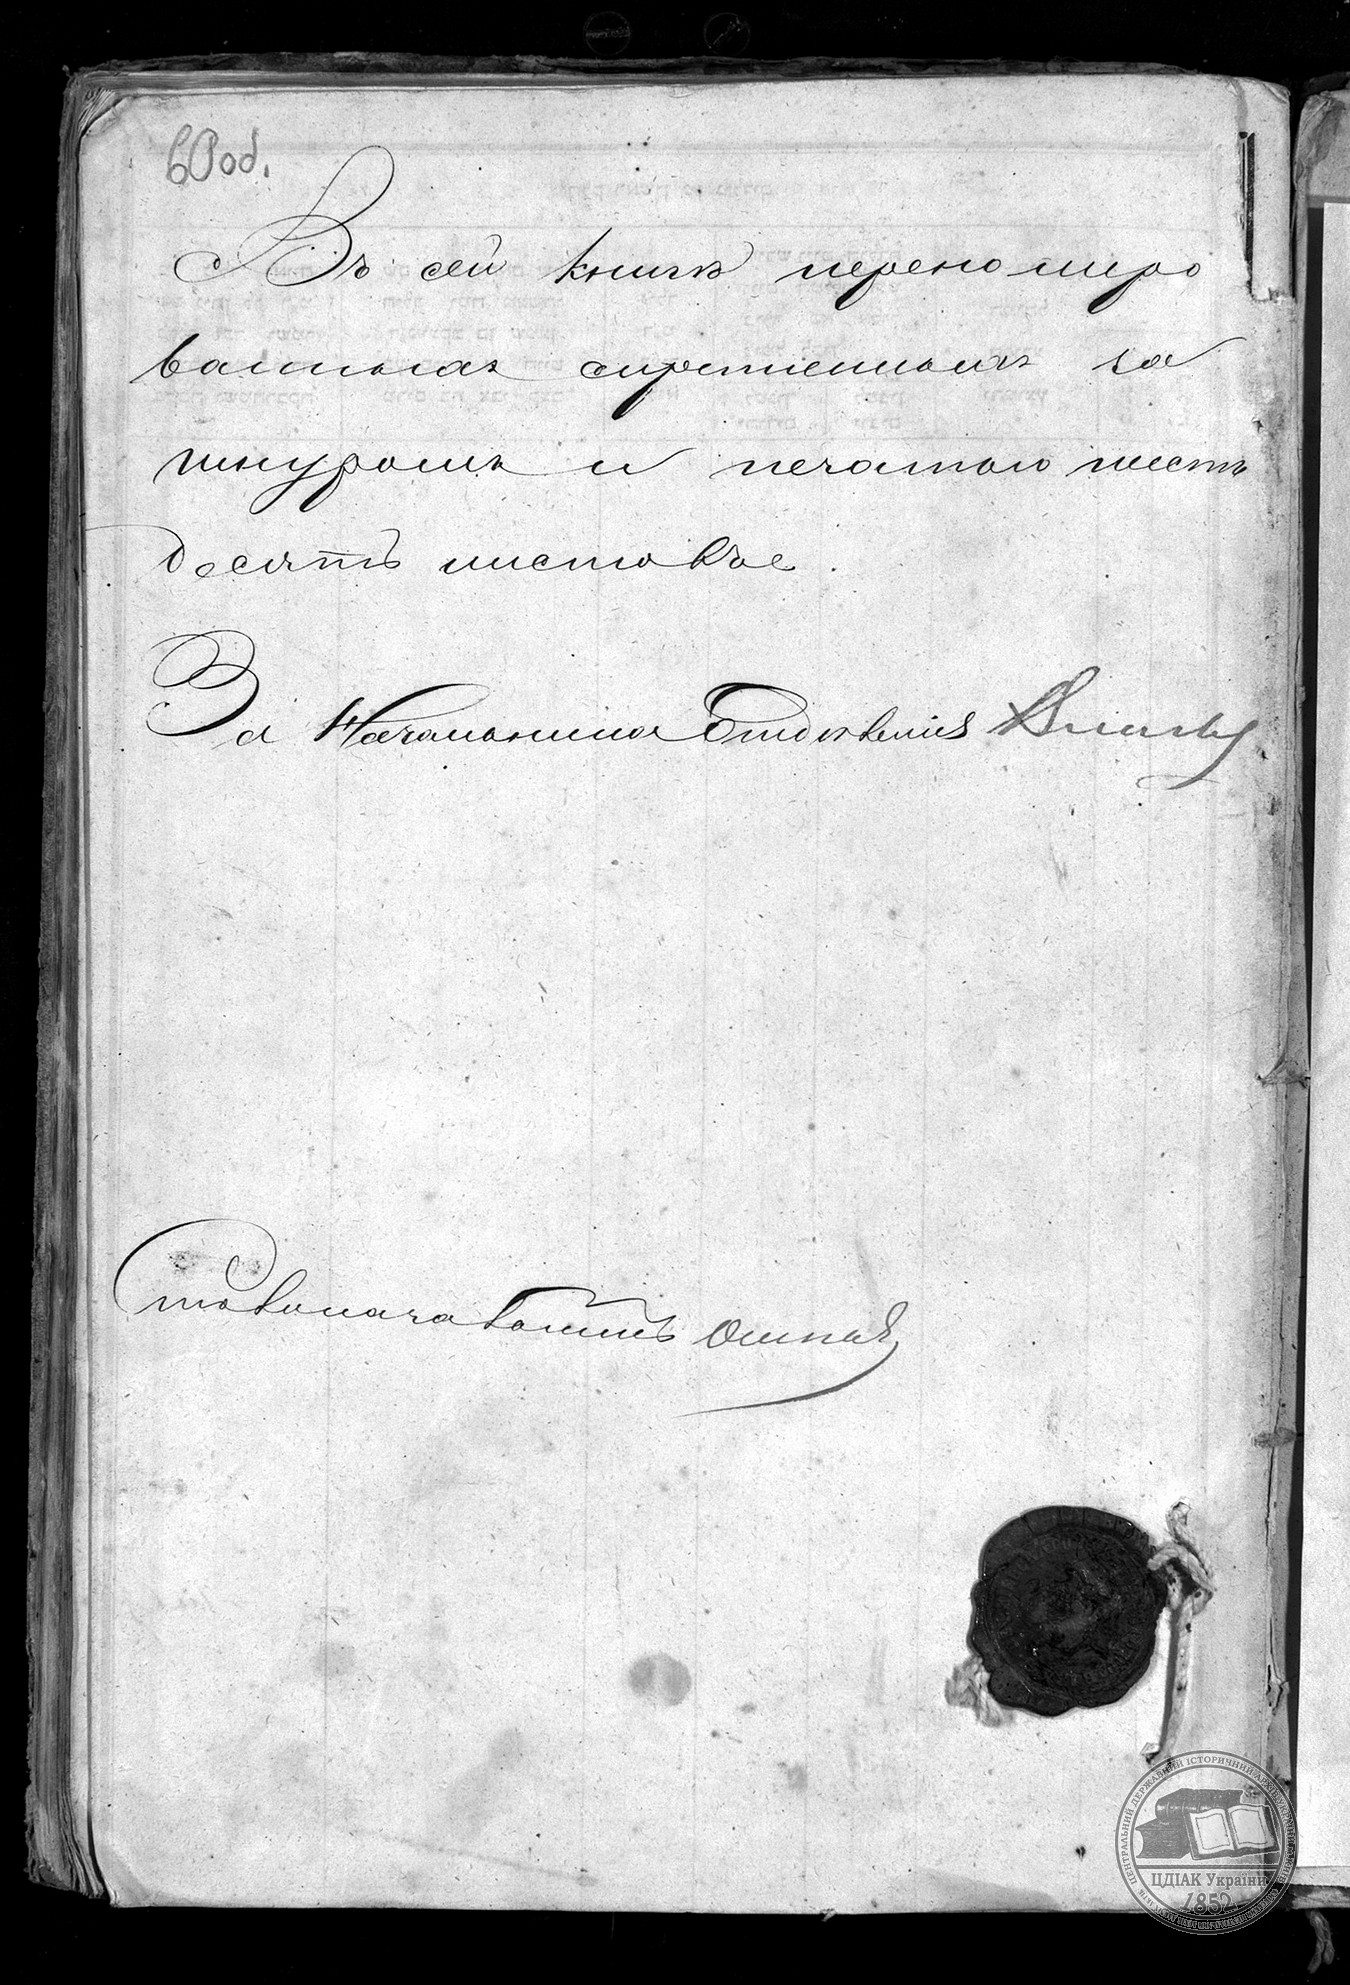 60 об.
Въ сей книгѣ переномиро
ванныхъ скрепленныхъ за
шнуромъ и печатью шесть
десятъ листовъ.
За Начальника Отдѣленія
Столоначальникъ
ЦЕНТРАЛЬНИЙ ДЕРЖАВНИЙ ІСТОРИЧНИЙ АРХІВ УКРАЇНИ
ЦДІАК України
1852